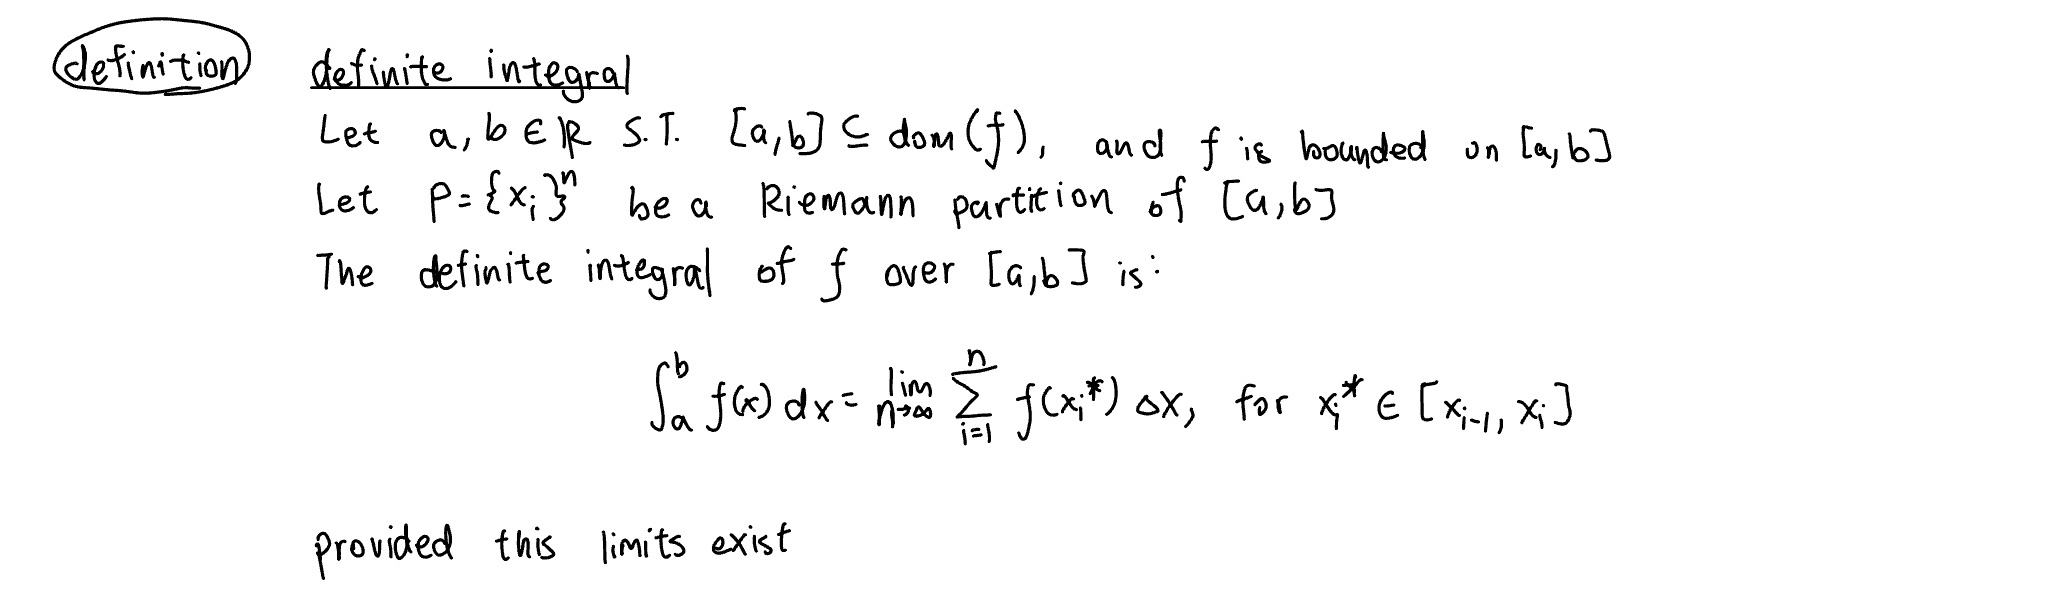 definition definite integral
Let a, b ∈ ℝ S.T. [a,b] ⊆ dom(f), and f is bounded on [a,b]
Let P = {x_i}^n be a Riemann partition of [a,b]
The definite integral of f over [a,b] is:
∫_a^b f(x) dx = lim_{n→∞} ∑_{i=1}^n f(x_i*) Δx, for x_i* ∈ [x_{i-1}, x_i]
provided this limits exist